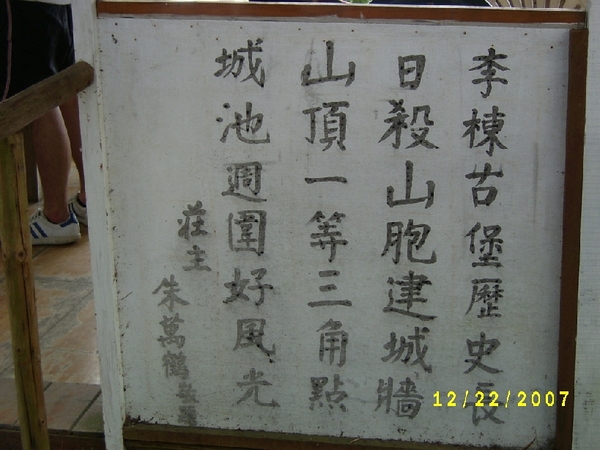 李棟古堡歷史長
日殺山胞建城牆
山頂一等三角點
城池週圍好風光
莊主
朱萬鶴敬
12/22/2007